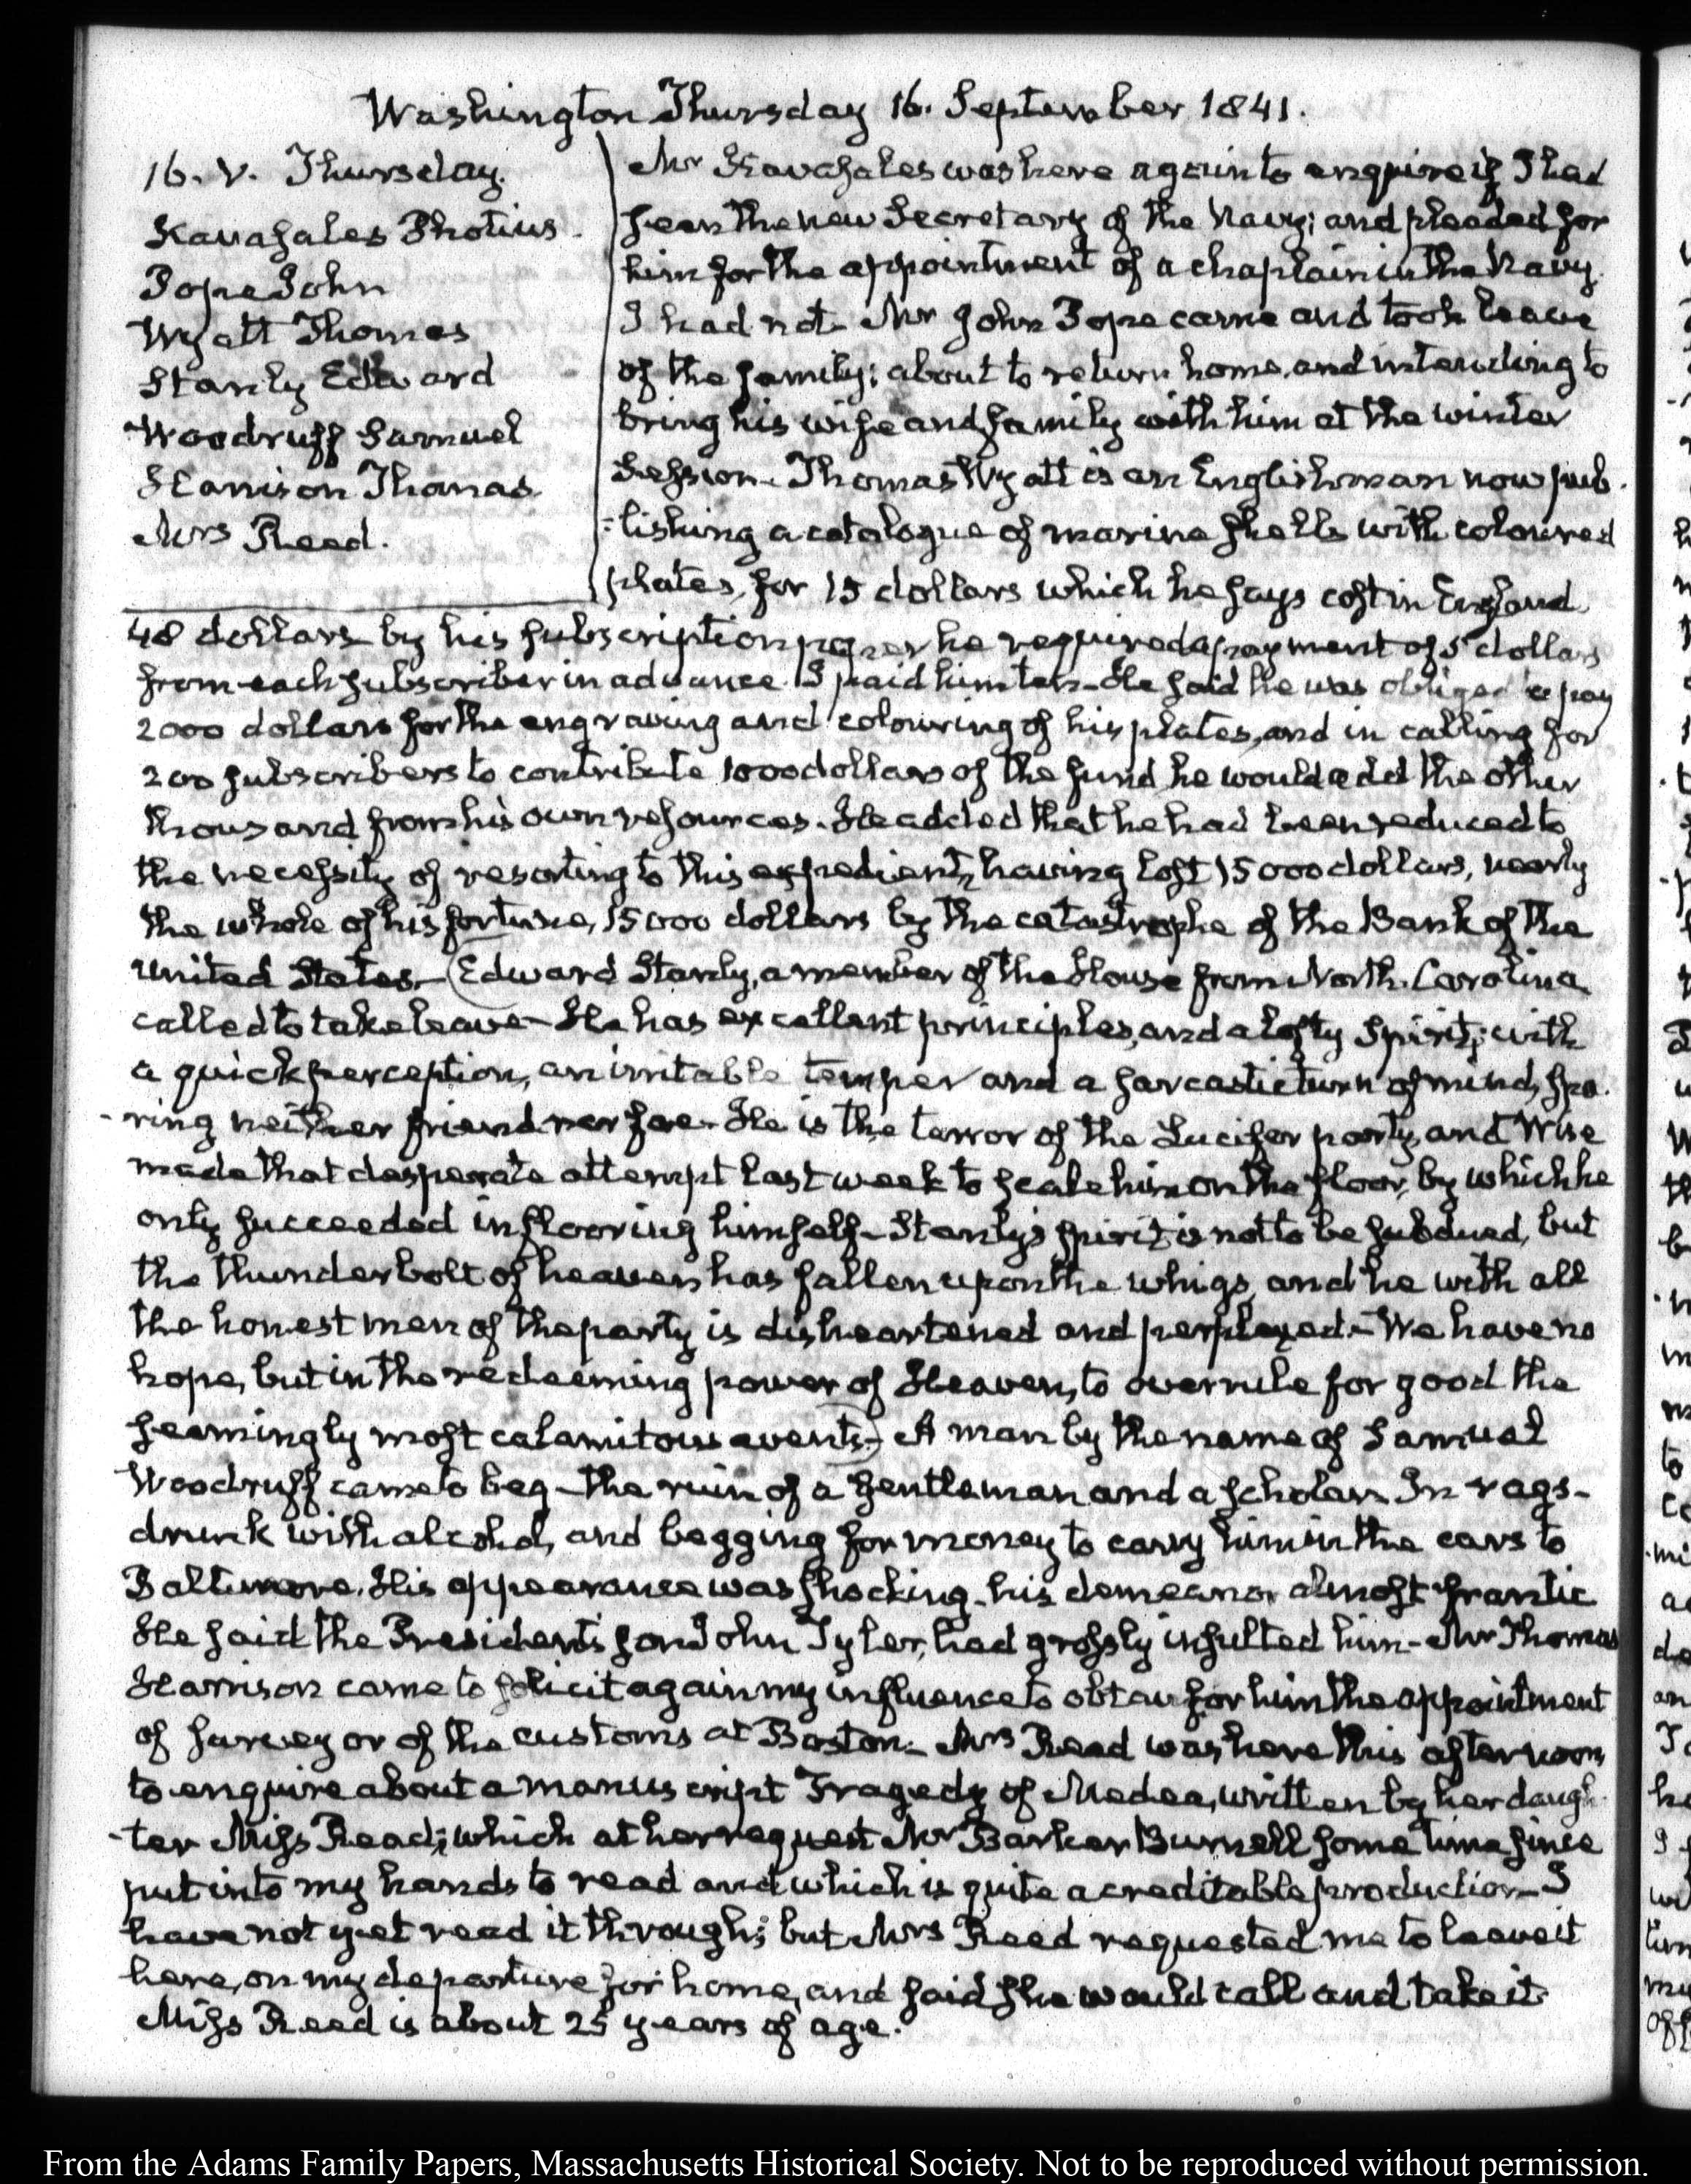 Washington Thursday 16. September 1841.
16. V. Thursday.
Kavasales Photius.
Pope John
Wyatt Thomas
Stanly Edward
Woodruff Samuel
Harrison Thomas
Mrs Read.
Mr Kavasales was here again to enquire if I had
seen the new Secretary of the Navy; and pleaded for
him for the appointment of a chaplain in the Navy.
I had not. Mr John Pope came and took leave
of the family; about to return home, and intending to
bring his wife and family with him at the winter
Session. Thomas Wyatt is an Englishman now pub-
-lishing a catalogue of marine shells with coloured
plates, for 15 dollars which he says cost in England
48 dollars by his subscription paper he required a payment of 5 dollars
from each subscriber in advance. I paid him ten. He said he was obliged to pay
2000 dollars for the engraving and colouring of his plates, and in calling for
200 subscribers to contribute 1000 dollars of the fund he would add the other
thousand from his own resources. He added that he had been reduced to
the necessity of resorting to this expedient, having lost 15000 dollars, nearly
the whole of his fortune, 15000 dollars by the catastrophe of the Bank of the
United States. Edward Stanly, a member of the House from North-Carolina
called to take leave. He has excellent principles, and a lofty Spirit; with
a quick perception, an irritable temper and a sarcastic turn of mind, spa-
-ring neither friend nor foe. He is the terror of the Lucifer party, and Wise
made that desperate attempt last week to scale him on the floor, by which he
only succeeded in flooring himself. Stanly's spirit is not to be subdued, but
the thunderbolt of heaven has fallen upon the whigs, and he with all
the honest men of the party is disheartened and perplexed. We have no
hope, but in the redeeming power of Heaven, to overrule for good the
seemingly most calamitous events. A man by the name of Samuel
Woodruff came to beg the ruin of a gentleman and a scholar. In rags-
drunk with alcohol, and begging for money to carry him in the cars to
Baltimore. His appearance was shocking, his demeanor almost frantic
He said the President's son John Tyler, had grossly insulted him. Mr Thomas
Harrison came to solicit again my influence to obtain for him the appointment
of surveyor of the customs at Boston. Mrs Read was here this afternoon,
to enquire about a manuscript Tragedy of Medea, written by her daugh-
-ter Miss Read; which at her request Mr Barker Burnell some time since
put into my hands to read and which is quite a creditable production. I
have not yet read it through; but Mrs Read requested me to leave it
here, on my departure for home, and said she would call and take it.
Miss Read is about 25 years of age.
From the Adams Family Papers, Massachusetts Historical Society. Not to be reproduced without permission.